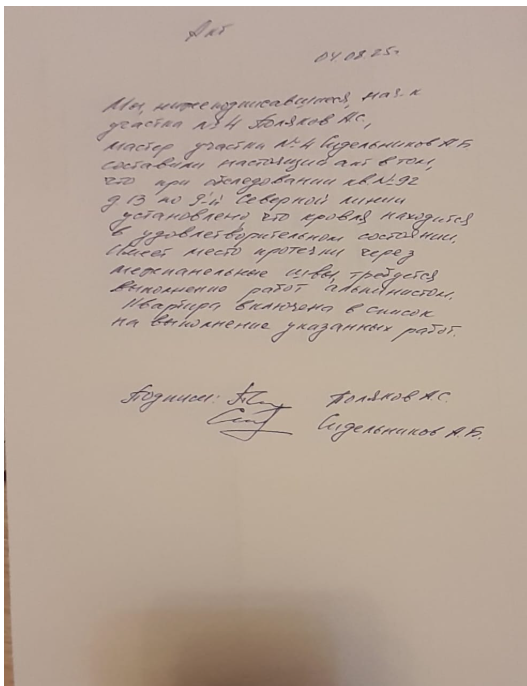 Акт
04.08.25г.
Мы, нижеподписавшиеся, нач-к
участка №4 Поляков А.С.,
мастер участки №4 Сидельников А.Б
составили настоящий акт в том,
что при обследовании кв.№92
д.13 по 9-й Северной линии
установлено, что кровля находится
в удовлетворительном состоянии.
Имеет место протечки через
межпанельные швы, требуется
выполнение работ альпинистом.
Квартира включена в список
на выполнение указанных работ.
Подписи: Поляков А.С.
Сидельников А.Б.